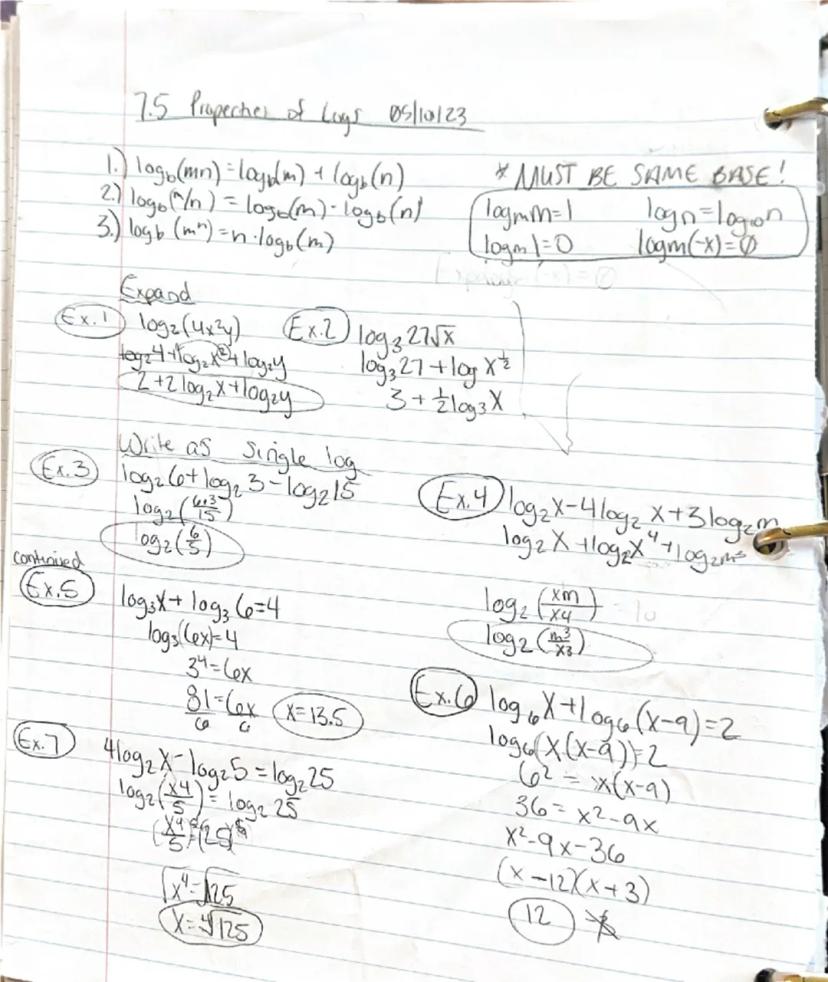 7.5 Properties of Logs 05/10/23
1.) log_b(mn)=log_b(m)+log_b(n)
2.) log_b(m/n)=log_b(m)-log_b(n)
3.) log_b(mⁿ)=n·log_b(m)
* MUST BE SAME BASE!
log_m m=1 log n=log₁₀n
log_m 1=0 log_m(-x)=∅
Expand
Ex.1 log₂(4x²y)
log₂4+log₂x²+log₂y
2+2log₂x+log₂y
Ex.2 log₃27√x
log₃27+log x^½
3+½log₃x
Write as single log
Ex.3 log₂6+log₂3-log₂15
log₂(6·3/15)
log₂(6/5)
Ex.4 log₂x-4log₂x+3log₂m
log₂x+log₂x⁴+log₂m³
log₂(xm/x4)
log₂(m³/x3)
continued
Ex.5 log₃x+log₃6=4
log₃(6x)=4
3⁴=6x
81=6x
6 6
x=13.5
Ex.6 log₆x+log₆(x-9)=2
log₆(x(x-9))=2
6²=x(x-9)
36=x²-9x
x²-9x-36
(x-12)(x+3)
12
Ex.7 4log₂x-log₂5=log₂25
log₂(x4/5)=log₂25
√x⁴=√125
x=⁴√125